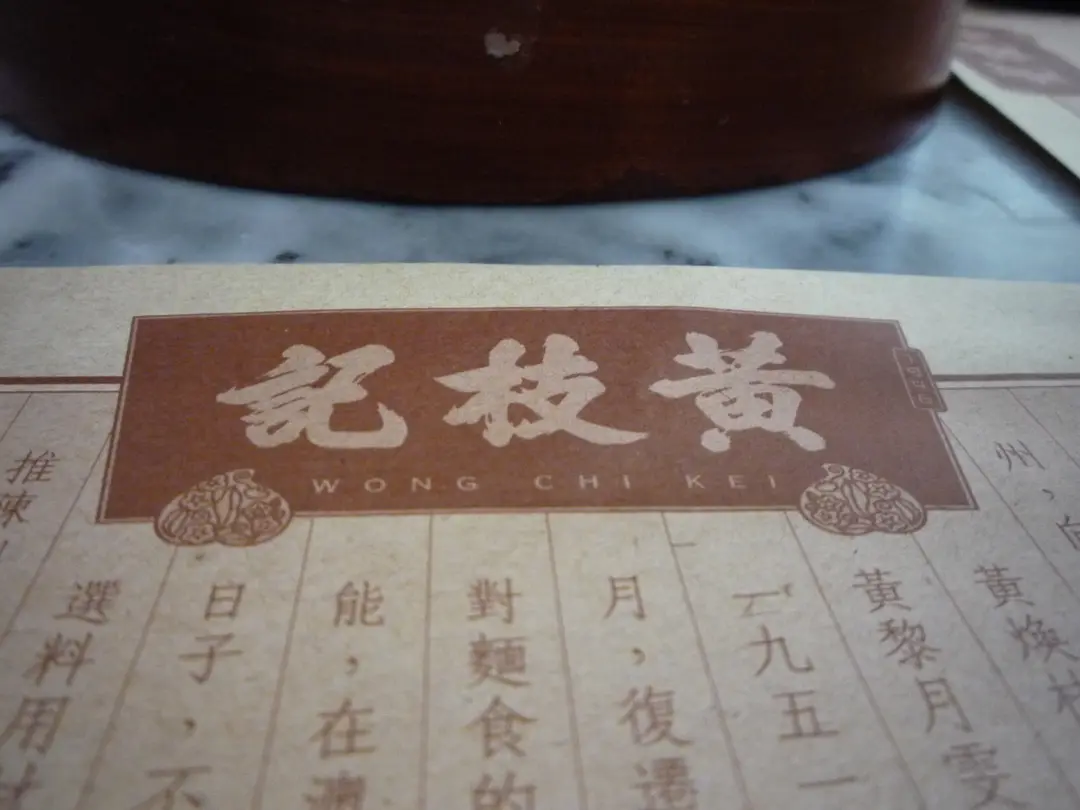 黃枝記
WONG CHI KEI
州，
黃煥枝
黃黎月雯
一九五一
月，復還
對麵食的
能，在澳
日子，不
選料用
推陳